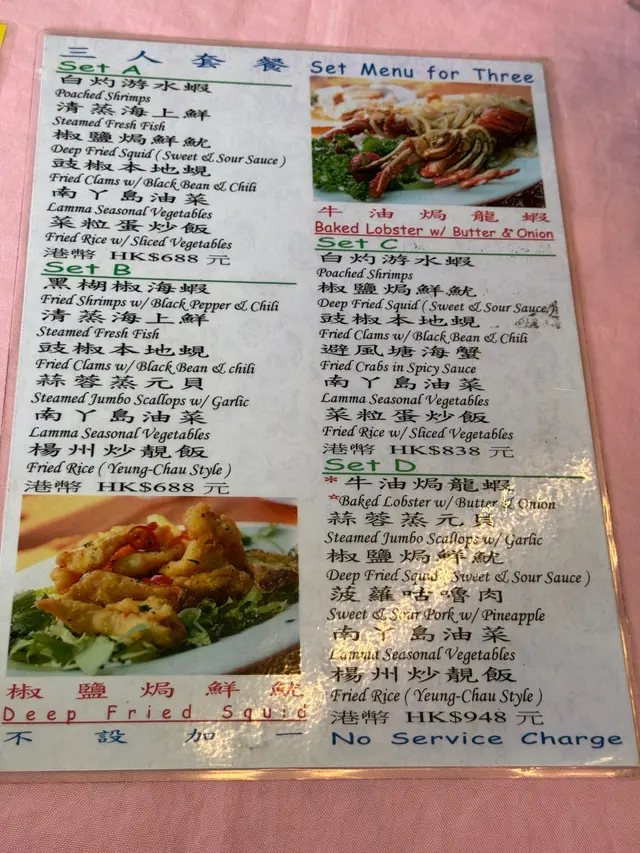 三人套餐 Set Menu for Three
Set A
白灼游水蝦
Poached Shrimps
清蒸海上鮮
Steamed Fresh Fish
椒鹽焗鮮魷
Deep Fried Squid ( Sweet & Sour Sauce )
豉椒本地蜆
Fried Clams w/ Black Bean & Chili
南丫島油菜
Lamma Seasonal Vegetables
菜粒蛋炒飯
Fried Rice w/ Sliced Vegetables
港幣 HK$688 元
Set B
黑椒海蝦
Fried Shrimps w/ Black Pepper & Chili
清蒸海上鮮
Steamed Fresh Fish
豉椒本地蜆
Fried Clams w/ Black Bean & chili
蒜蓉蒸元貝
Steamed Jumbo Scallops w/ Garlic
南丫島油菜
Lamma Seasonal Vegetables
楊州炒靚飯
Fried Rice ( Yeung-Chau Style )
港幣 HK$688 元
椒鹽焗鮮魷
Deep Fried Squid
牛油焗龍蝦
Baked Lobster w/ Butter & Onion
Set C
白灼游水蝦
Poached Shrimps
椒鹽焗鮮魷
Deep Fried Squid ( Sweet & Sour Sauce )
豉椒本地蜆
Fried Clams w/ Black Bean & Chili
避風塘海蟹
Fried Crabs in Spicy Sauce
南丫島油菜
Lamma Seasonal Vegetables
菜粒蛋炒飯
Fried Rice w/ Sliced Vegetables
港幣 HK$838 元
Set D
*牛油焗龍蝦
*Baked Lobster w/ Butter & Onion
蒜蓉蒸元貝
Steamed Jumbo Scallops w/ Garlic
椒鹽焗鮮魷
Deep Fried Squid ( Sweet & Sour Sauce )
菠蘿咕嚕肉
Sweet & Sour Pork w/ Pineapple
南丫島油菜
Lamma Seasonal Vegetables
楊州炒靚飯
Fried Rice ( Yeung-Chau Style )
港幣 HK$948 元
不設加一 No Service Charge